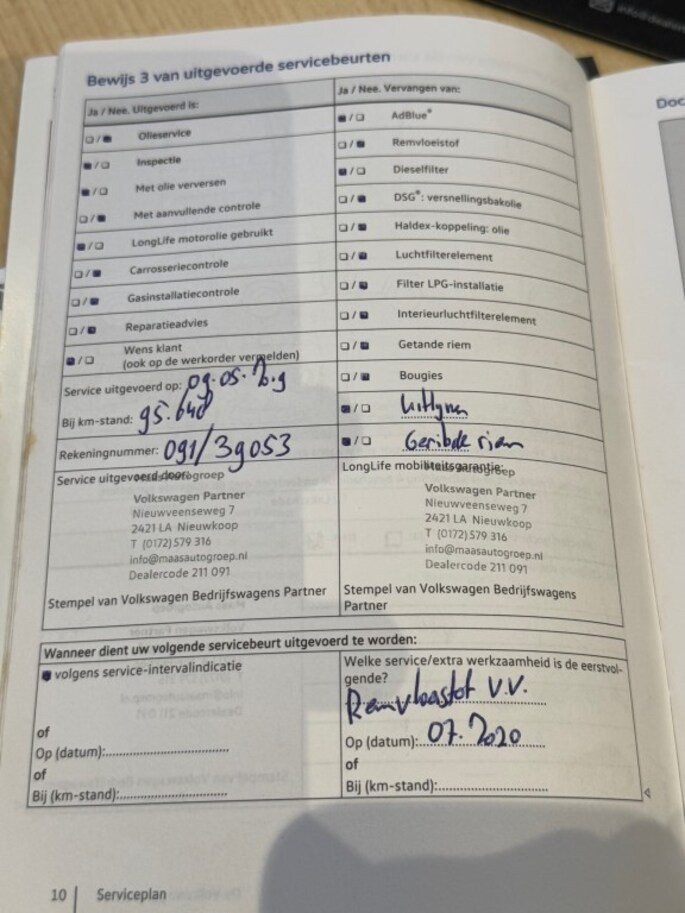 Bewijs 3 van uitgevoerde servicebeurten
Ja / Nee. Uitgevoerd is:
Olieservice
Inspectie
Met olie verversen
Met aanvullende controle
LongLife motorolie gebruikt
Carrosseriecontrole
Gasinstallatiecontrole
Reparatieadvies
Wens klant
(ook op de werkorder vermelden)
Service uitgevoerd op: 09.05.2.19
Bij km-stand: 95.648
Rekeningnummer: 091/39053
Service uitgevoerd door:
Maas Autogroep
Volkswagen Partner
Nieuwveenseweg 7
2421 LA Nieuwkoop
T (0172) 579 316
info@maasautogroep.nl
Dealercode 211 091
Stempel van Volkswagen Bedrijfswagens Partner
Ja / Nee. Vervangen van:
AdBlue®
Remvloeistof
Dieselfilter
DSG®: versnellingsbakolie
Haldex-koppeling: olie
Luchtfilterelement
Filter LPG-installatie
Interieurluchtfilterelement
Getande riem
Bougies
Uitlijnen
Geribde riem
LongLife mobiliteitsgarantie:
Maas Autogroep
Volkswagen Partner
Nieuwveenseweg 7
2421 LA Nieuwkoop
T (0172) 579 316
info@maasautogroep.nl
Dealercode 211 091
Stempel van Volkswagen Bedrijfswagens
Partner
Wanneer dient uw volgende servicebeurt uitgevoerd te worden:
volgens service-intervalindicatie
of
Op (datum):
of
Bij (km-stand):
Welke service/extra werkzaamheid is de eerstvol-
gende?
Remvloeistof V.V.
Op (datum): 07.2020
of
Bij (km-stand):
10 Serviceplan
Doc